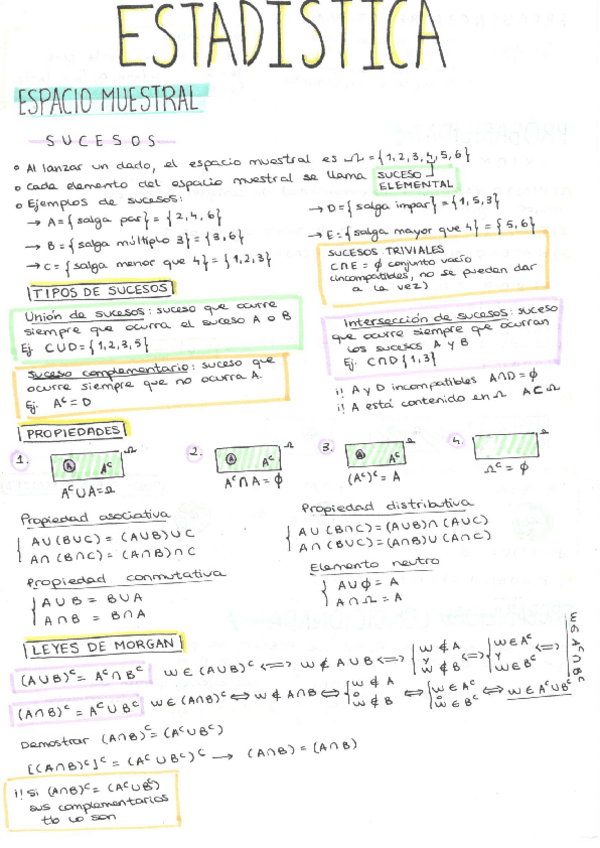 ESTADISTICA
ESPACIO MUESTRAL
SUCESOS
• Al lanzar un dado, el espacio muestral es Ω = {1,2,3,4,5,6}
• Cada elemento del espacio muestral se llama SUCESO ELEMENTAL
• Ejemplos de sucesos:
→ A = {salga par} = {2,4,6}
→ B = {salga múltiplo 3} = {3,6}
→ C = {salga menor que 4} = {1,2,3}
→ D = {salga impar} = {1,5,3}
→ E = {salga mayor que 4} = {5,6}
SUCESOS TRIVIALES
C∩E = ∅ conjunto vacío
(incompatibles, no se pueden dar
a la vez)
TIPOS DE SUCESOS
Unión de sucesos: suceso que ocurre
siempre que ocurra el suceso A o B
Ej. C∪D = {1,2,3,5}
Suceso complementario: suceso que
ocurre siempre que no ocurra A.
Ej. Aᶜ = D
Intersección de sucesos: suceso
que ocurre siempre que ocurran
los sucesos A y B
Ej. C∩D {1,3}
¡! A y D incompatibles A∩D = ∅
¡! A está contenido en Ω A⊂Ω
PROPIEDADES
1. A Aᶜ Ω
Aᶜ∪A = Ω
2. A Aᶜ Ω
Aᶜ∩A = ∅
3. A Aᶜ Ω
(Aᶜ)ᶜ = A
4. Ω
Ωᶜ = ∅
Propiedad asociativa
A∪(B∪C) = (A∪B)∪C
A∩(B∩C) = (A∩B)∩C
Propiedad conmutativa
A∪B = B∪A
A∩B = B∩A
Propiedad distributiva
A∪(B∩C) = (A∪B)∩(A∪C)
A∩(B∪C) = (A∩B)∪(A∩C)
Elemento neutro
A∪∅ = A
A∩Ω = A
LEYES DE MORGAN
(A∪B)ᶜ = Aᶜ∩Bᶜ W∈(A∪B)ᶜ <=> W∉A∪B <=> {W∉A y W∉B <=> {W∈Aᶜ y W∈Bᶜ <=> W∈Aᶜ∩Bᶜ
(A∩B)ᶜ = Aᶜ∪Bᶜ W∈(A∩B)ᶜ ⇔ W∉A∩B ⇔ {W∉A o W∉B ⇔ {W∈Aᶜ o W∈Bᶜ ⇔ W∈Aᶜ∪Bᶜ
Demostrar (A∩B)ᶜ = (Aᶜ∪Bᶜ)
[(A∩B)ᶜ]ᶜ = (Aᶜ∪Bᶜ)ᶜ → (A∩B) = (A∩B)
¡! Si (A∩B)ᶜ = (Aᶜ∪Bᶜ)
sus complementarios
tb lo son